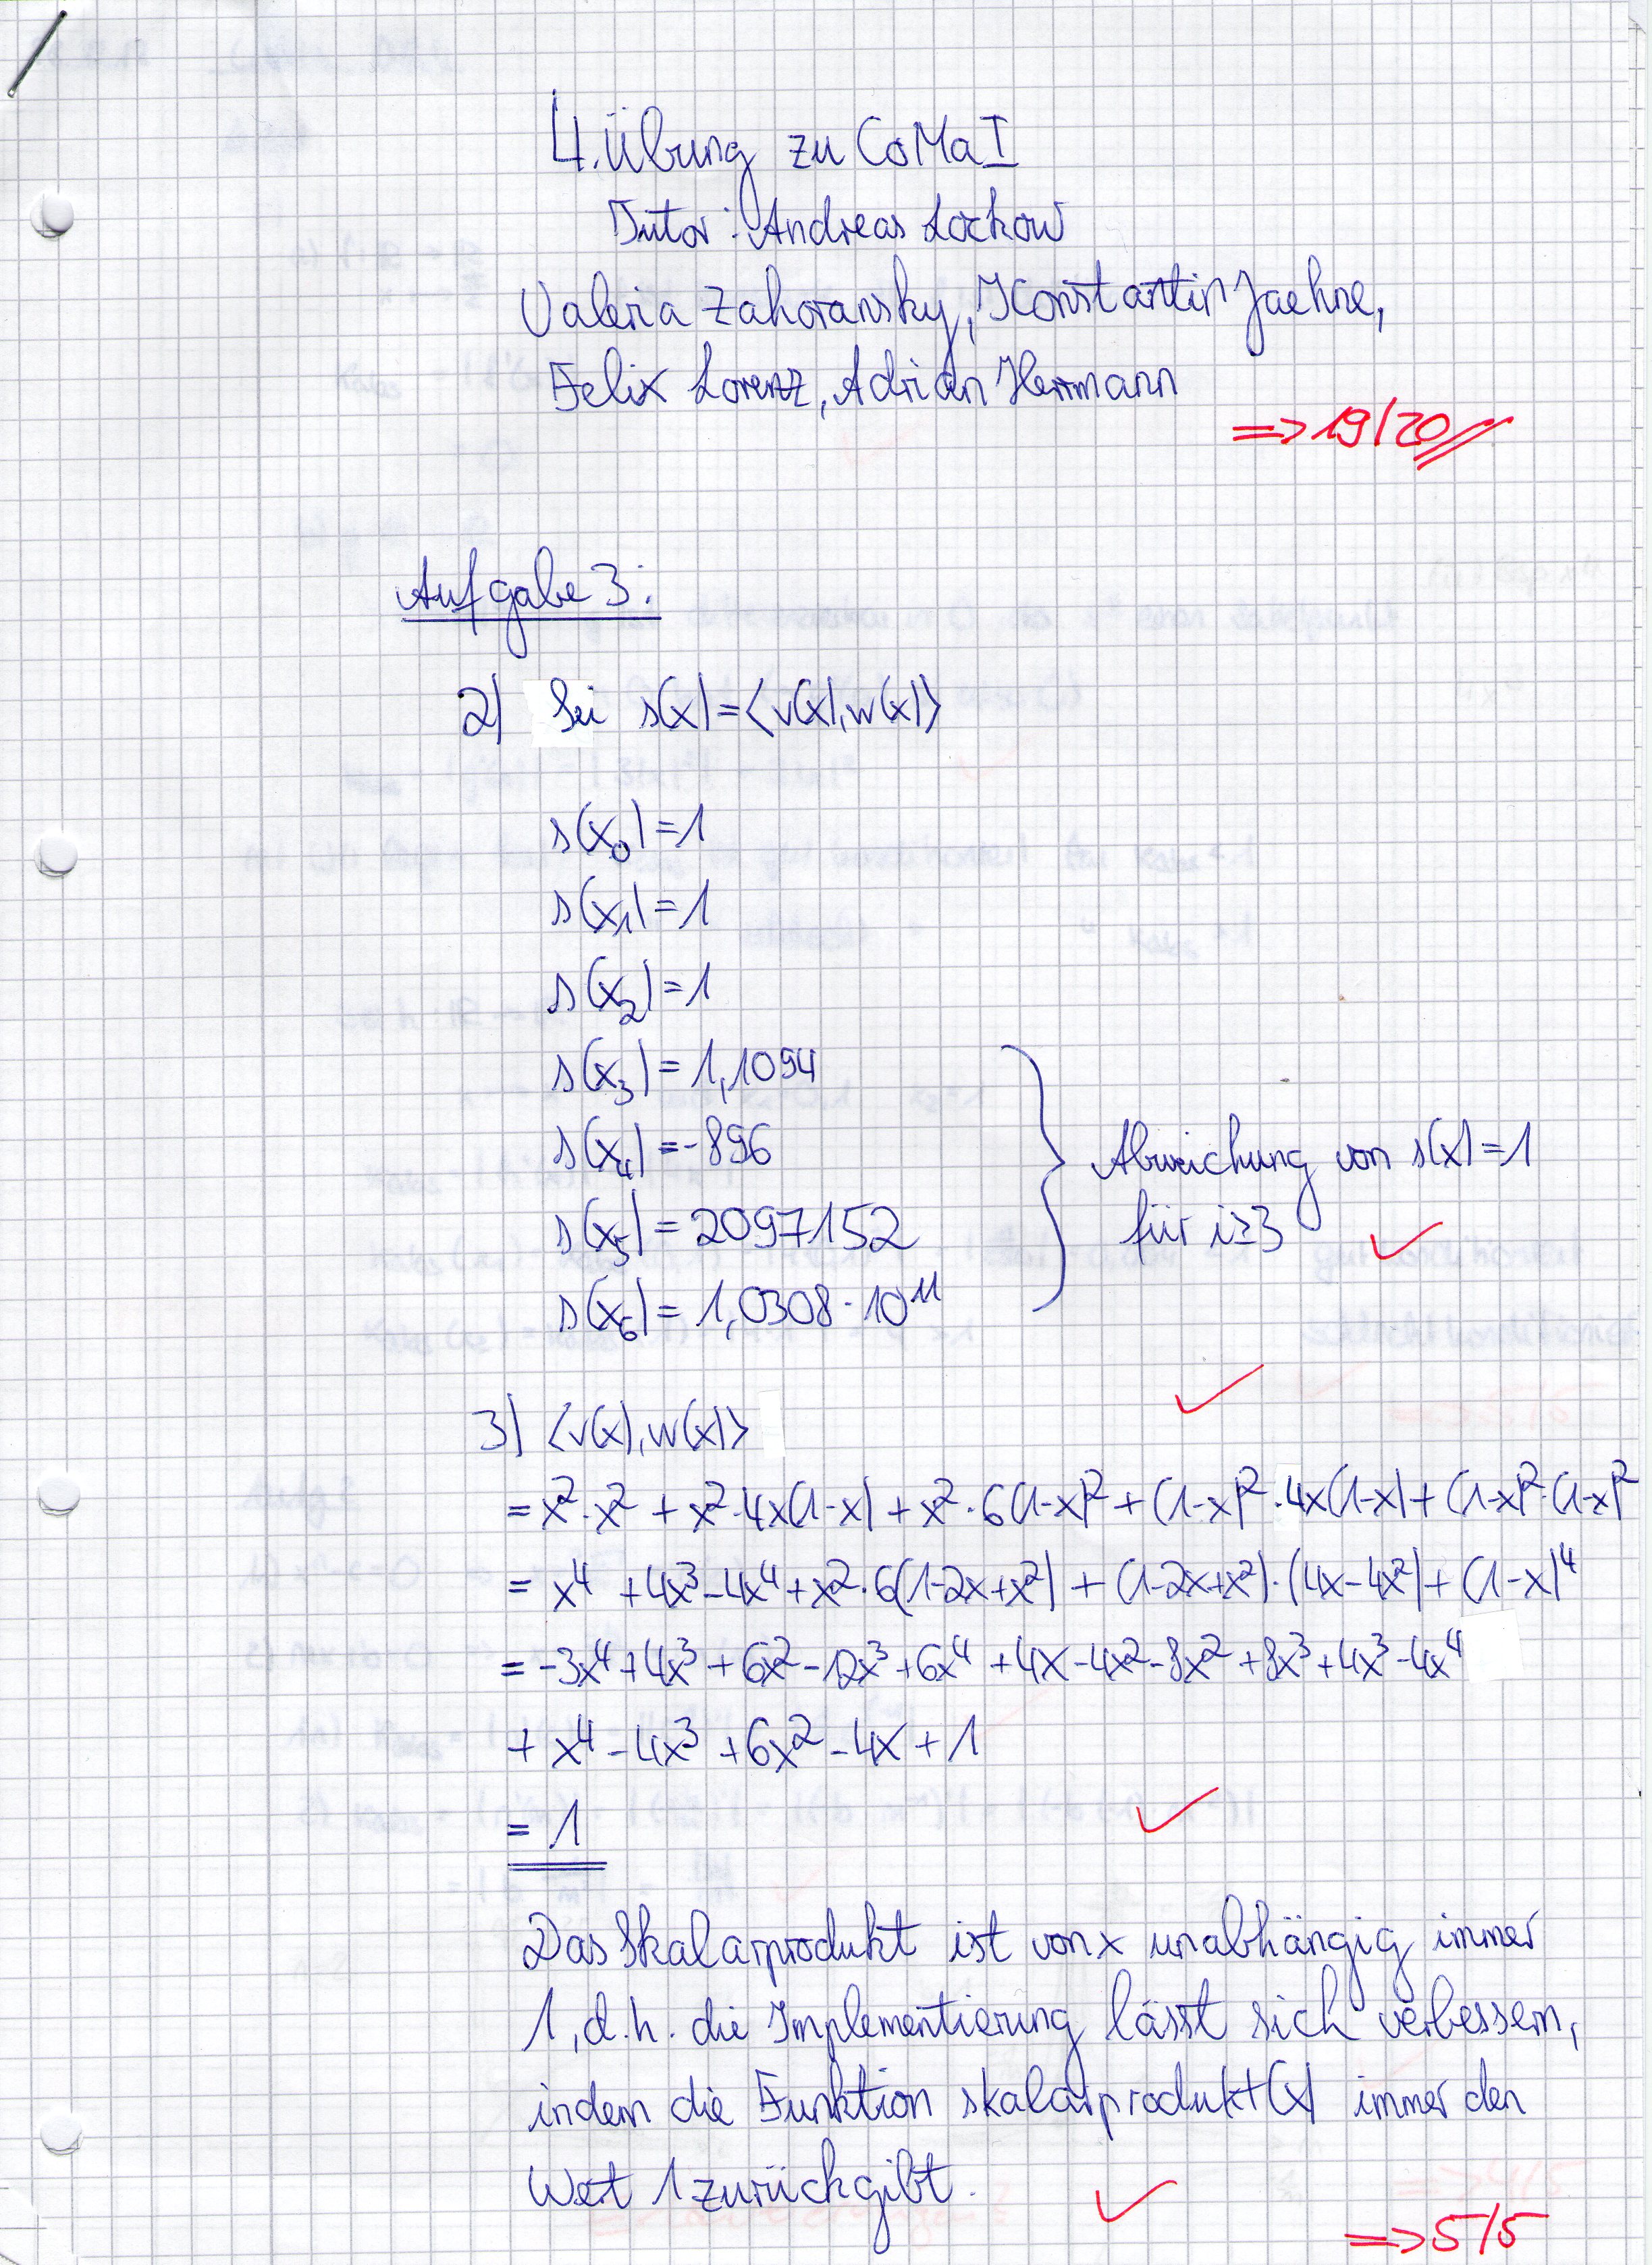 4. Übung zu CoMa I
Tutor: Andreas Lockow
Valeria Zahoransky, Konstantin Jaehne,
Felix Lorenz, Adrian Herrmann
=> 19/20
Aufgabe 3:
2) Sei s(x) = <v(x), w(x)>
s(x₀) = 1
s(x₁) = 1
s(x₂) = 1
s(x₃) = 1,1094
s(x₄) = -896
s(x₅) = 2097152
s(x₆) = 1,0308 · 10¹¹
Abweichung von s(x) = 1
für i ≥ 3 ✓
✓
3) <v(x), w(x)>
= x² · x² + x² · 4x(1-x) + x² · 6(1-x)² + (1-x)² · 4x(1-x) + (1-x)² · (1-x)²
= x⁴ + 4x³ - 4x⁴ + x² · 6(1-2x+x²) + (1-2x+x²) · (4x-4x²) + (1-x)⁴
= -3x⁴ + 4x³ + 6x² - 12x³ + 6x⁴ + 4x - 4x² - 8x² + 8x³ + 4x³ - 4x⁴
+ x⁴ - 4x³ + 6x² - 4x + 1
= 1 ✓
Das Skalarprodukt ist von x unabhängig immer
1, d.h. die Implementierung lässt sich verbessern,
indem die Funktion skalarprodukt(x) immer den
Wert 1 zurückgibt. ✓
=> 5/5